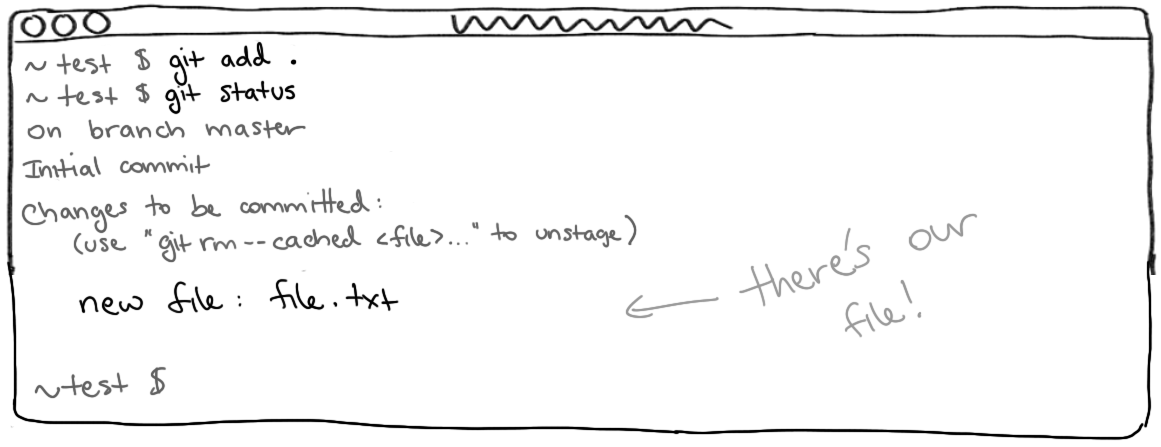 ~ test $ git add .
~ test $ git status
on branch master
Initial commit
Changes to be committed:
(use "git rm --cached <file>..." to unstage)
new file: file.txt
← there's our
file!
~test $